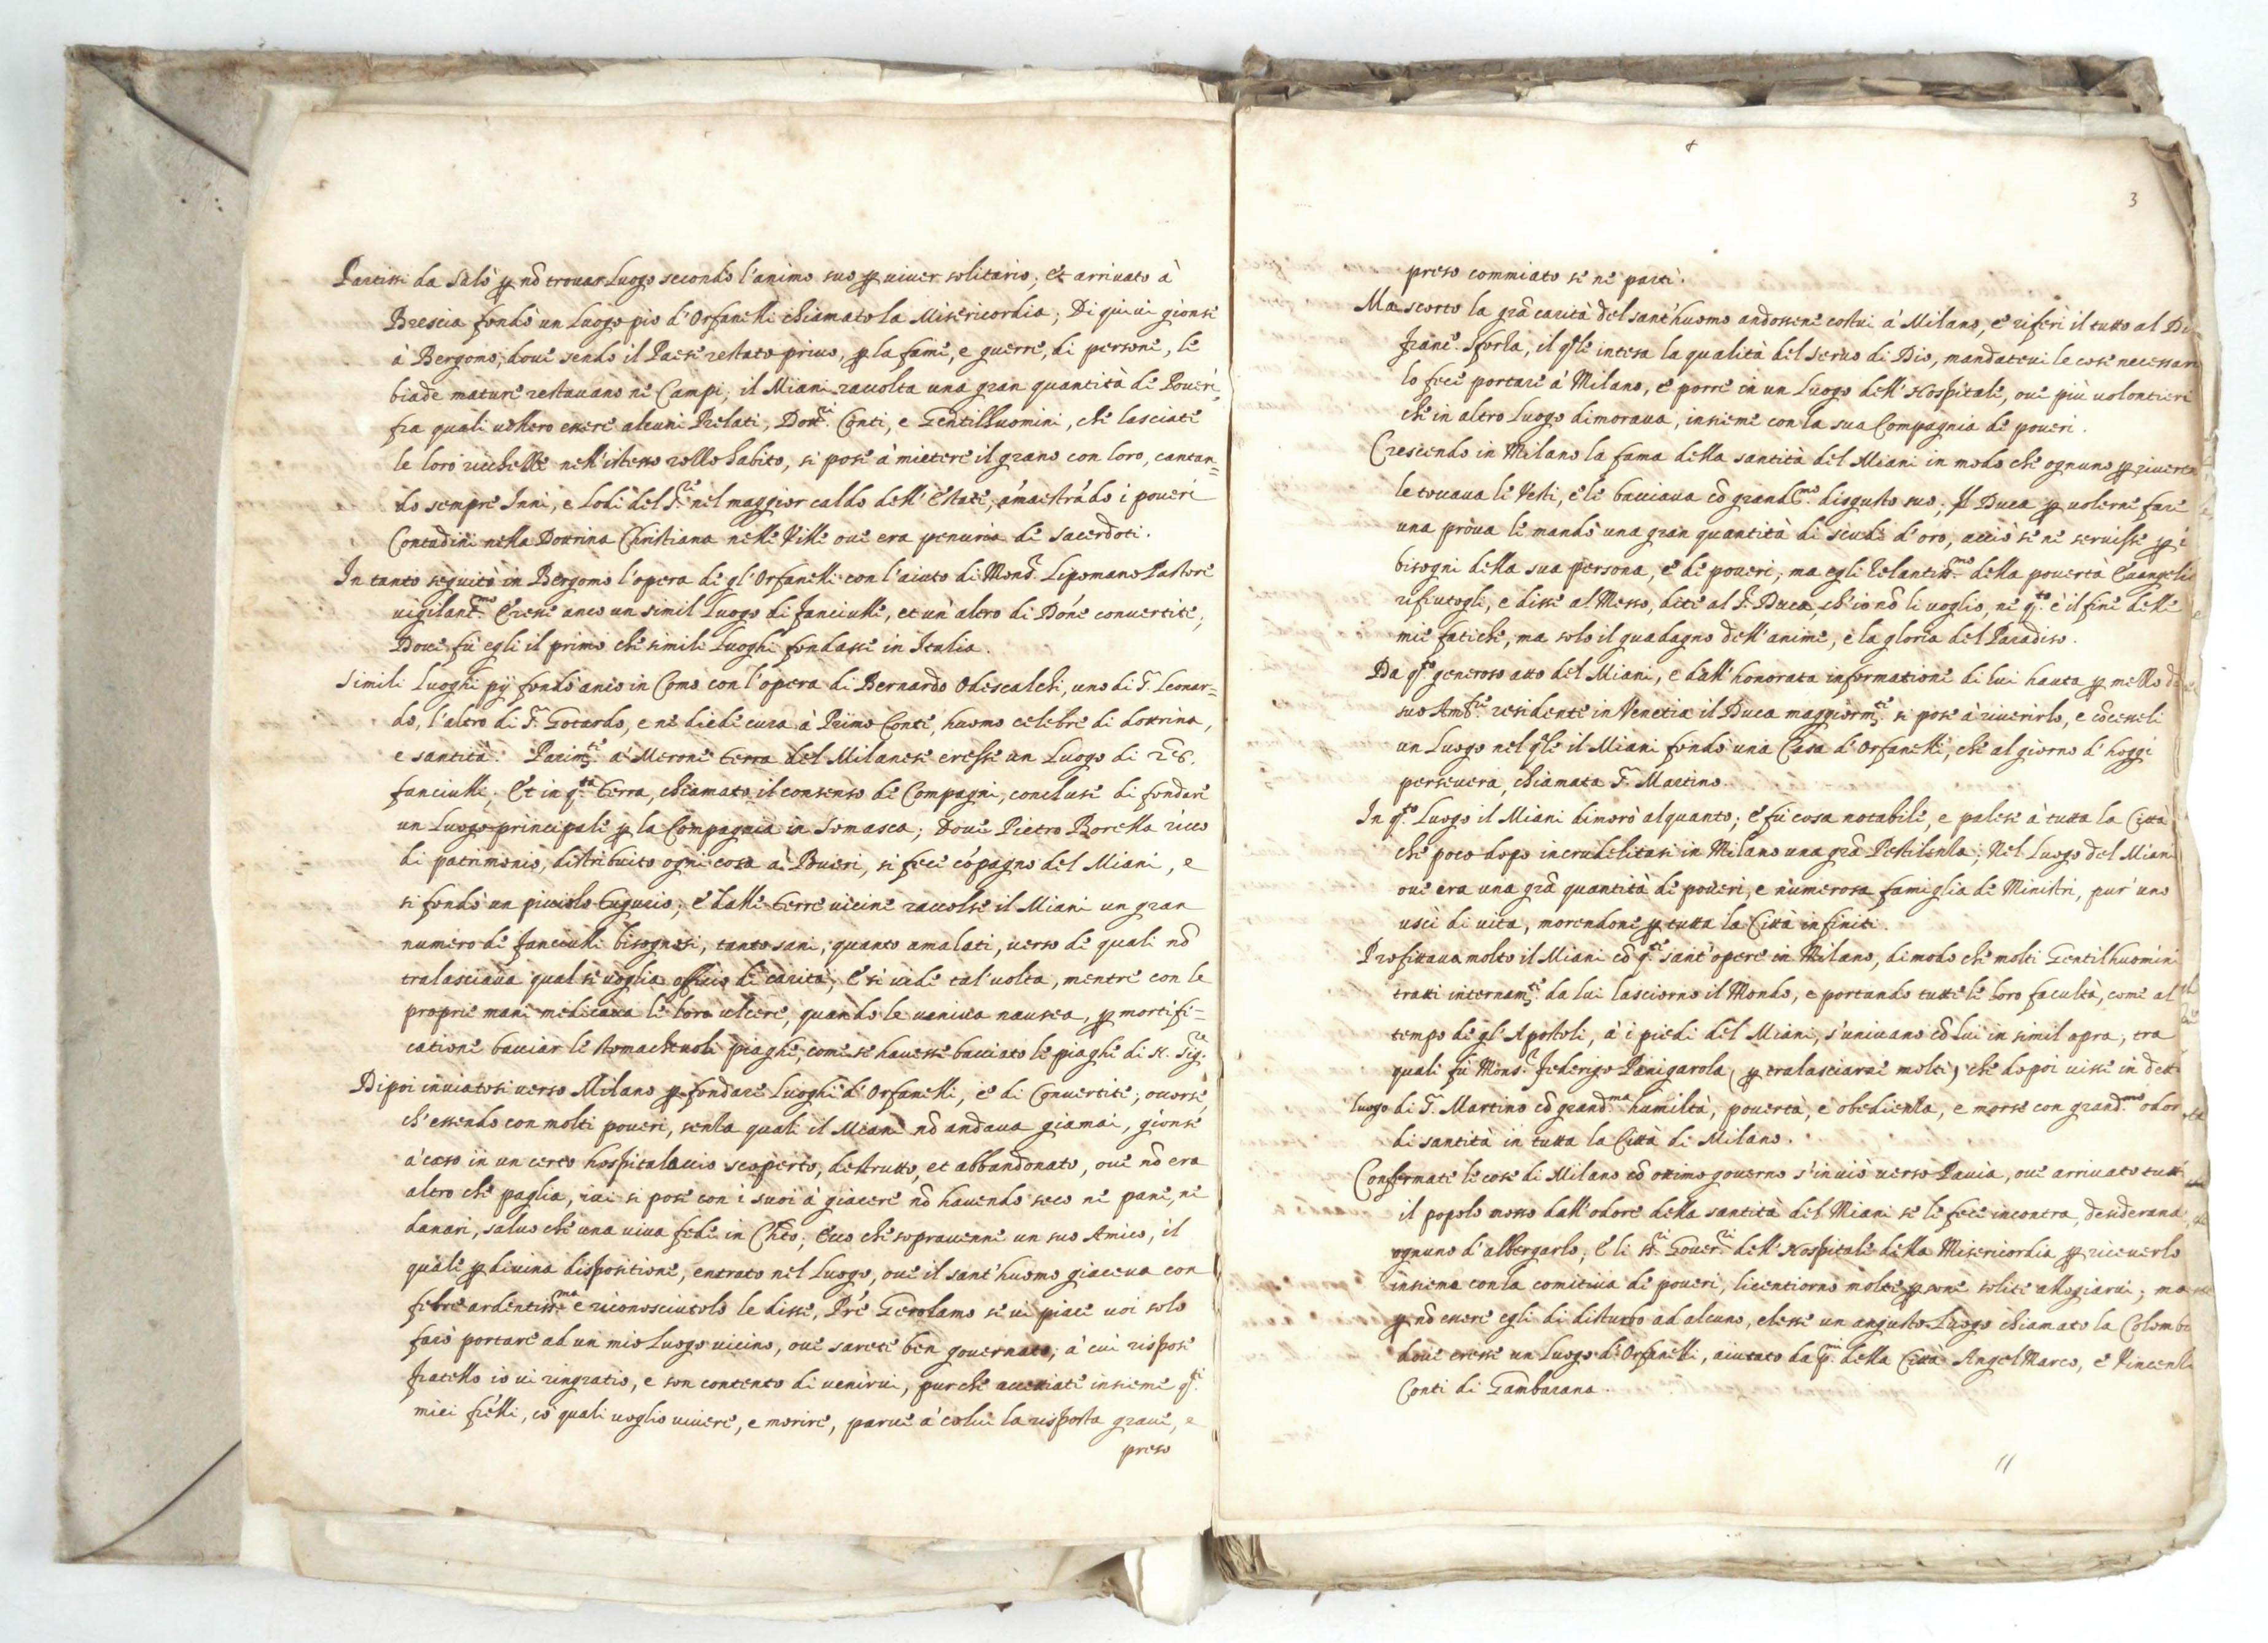 Partissi da Salò p nõ trouar Luogo secondo l'animo suo p uiuer solitario; et arriuato à
Brescia fondò un Luogo pio d'Orfanelli chiamato la Misericordia; Di quiui gionse
à Bergomo, doue sendo il Paese restato priuo, p la fame, e guerre, di persone, le
biade mature restauano ne Campi; il Miani raccolta una gran quantità de Poueri,
fra quali uollero essere alcuni Prelati, Dott.ri Conti, e Gentilhuomini, che lasciate
le loro ricchezze nell'istesso rozzo habito, si pose à mietere il grano con loro, cantan=
do sempre Inni, e Lodi del S.re nel maggior caldo dell'Estate, amaestrãdo i poueri
Contadini nella Dottrina Christiana nelle Ville oue era penuria de Sacerdoti.
In tanto seguitò in Bergomo l'opera de gl'Orfanelli con l'aiuto di Mons.r Lipomano Pastore
uigilant.mo Eresse anco un simil Luogo di fanciulle, et un'altro di Dõne conuertite,
Doue fu egli il primo che simili Luoghi fondasse in Italia.
Simili Luoghi pij fondò anco in Como con l'opera di Bernardo Odescalchi, uno di S. Leonar=
do, l'altro di S. Gotardo, e ne diede cura à Primo Conte, huomo celebre di dottrina,
e santità. Parim.te à Merone terra del Milanese eresse un Luogo di
fanciulli; Et in q.ta terra, chiamato il consenso de Compagni, concluse di fondare
un Luogo principale p la Compagnia in Somasca; Doue Pietro Borello ricco
di patrimonio, distribuito ogni cosa a Poueri, si fece cõpagno del Miani, e
si fondò un picciolo tugurio; e dalle terre uicine raccolse il Miani un gran
numero de fanciulli bisognosi, tanto sani, quanto amalati, uerso de quali nõ
tralasciaua qual si uoglia officio di carità; E si uide tal'uolta, mentre con le
proprie mani medicaua le loro ulcere, quando le ueniua nausea, p mortifi=
catione bacciar le stomacheuoli piaghe, come se hauesse bacciato le piaghe di N. Sig.re
Dipoi inuiatosi uerso Milano p fondare Luoghi d'Orfanelli, e di Conuertite, occorse,
ch'essendo con molti poueri, senza quali il Miani nõ andaua giamai, gionse
à caso in un certo hospitalaccio scoperto, destrutto, et abbandonato, oue nõ era
altro che paglia, iui si pose con i suoi à giacere nõ hauendo seco ne pane, ne
danari, saluo che una uiua fede in Chto; Ecco che soprauenne un suo Amico, il
quale p diuina dispositione, entrato nel Luogo, oue il sant'huomo giaceua con
febre ardentiss.ma e riconosciutolo le disse, Pre Gerolamo se ui piace uoi solo
farò portare ad un mio Luogo uicino, oue sarete ben gouernato; à cui rispose
fratello io ui ringratio, e son contento di uenirui, purche accettiate insieme q.ti
miei frelli, cõ quali uoglio uiuere, e morire, parue à colui la risposta graue, e
preso
3
preso commiato se ne partì.
Ma scorto la grã carità del sant'huomo andossene costui à Milano, e riferì il tutto al
Franc. Sforza, il qle intesa la qualità del Seruo di Dio, mandateui le cose
lo fece portare à Milano, e porre in un Luogo dell'Hospitale, oue più uolontieri
che in altro luogo dimoraua, insieme con la sua Compagnia de poueri.
Crescendo in Milano la fama della santità del Miani in modo che ognuno p
le toccaua le Vesti, e le bacciaua cõ grand.mo disgusto suo; Il Duca p uolerne fare
una proua le mandò una gran quantità di scudi d'oro, acciò se ne seruisse p i
bisogni della sua persona, e de poueri; ma egli Zelantiss.mo della pouertà
rifiutogli, e disse al Messo, dite al S. Duca, ch'io nõ li uoglio, ne q.to è il fine delle
mie fatiche, ma solo il guadagno dell'anime, e la gloria del Paradiso.
Da q.to generoso atto del Miani, e dall'honorata informatione di lui hauta p mezzo
suo Amb.re residente in Venetia il Duca maggiorm.te si pose à riuerirlo, e cõcesseli
un Luogo nel qle il Miani fondò una Casa d'Orfanelli, che al giorno d'hoggi
perseuera, chiamata S. Martino.
In q.to Luogo il Miani dimorò alquanto; e fù cosa notabile, e palese à tutta la Città
che poco dopo incrudelitasi in Milano una grã Pestilenza; Nel Luogo del Miani
oue era una grã quantità de poueri, e numerosa famiglia de Ministri, pur'uno
uscì di uita, morendone p tutta la Città infiniti.
Profittaua molto il Miani cõ q.te sant'opere in Milano, dimodo che molti Gentilhuomini
tratti internam.te da lui lasciorno il Mondo, e portando tutte le loro facultà, come al
tempo de gl'Apostoli, à i piedi del Miani, s'uniuano cõ lui in simil opra; tra
quali fù Mons.r Federigo Panigarola (p tralasciare molti) che dopoi uisse in
luogo di S. Martino cõ grand.ma humiltà, pouertà, e obedienza, e morse con grand.mo odor
di santità in tutta la Città di Milano.
Confermate le cose di Milano cõ ottimo gouerno s'inuiò uerso Pauia, oue arriuato
il popolo mosso dall'odore della santità del Miani se le fece incontra, desideraua
ognuno d'albergarlo; E li SS.ri Gouer.ri dell'Hospitale della Misericordia p riceuerlo
insieme con la comitiua de poueri, licentiorno molte psone solite allogiarui; ma
p nõ essere egli di disturbo ad alcuno, elesse un angusto Luogo chiamato la
doue eresse un Luogo d'Orfanelli, aiutato da p.mi della Città Angel Marco, e
Conti di Gambarana.
11